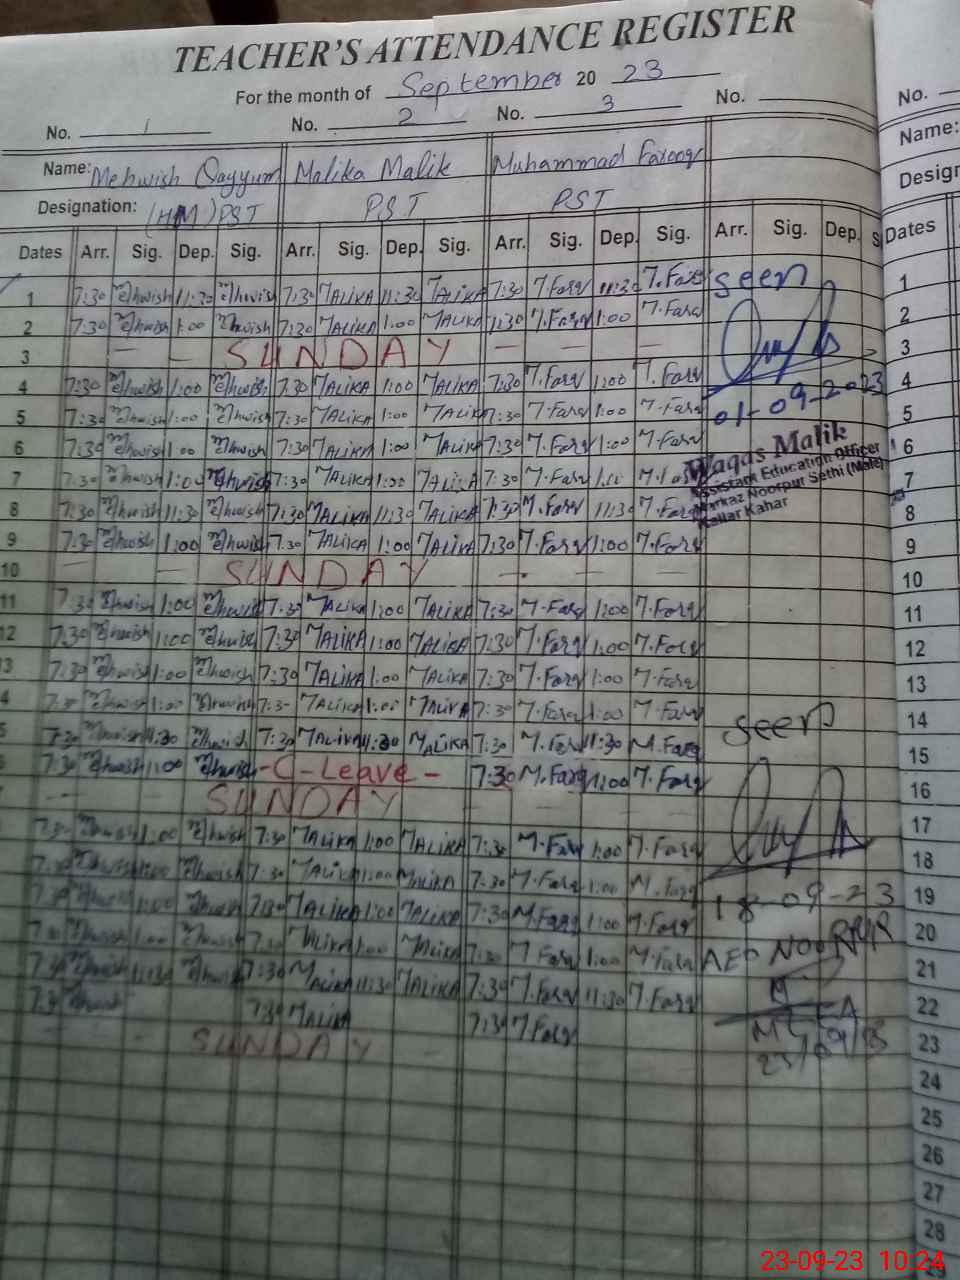 TEACHER'S ATTENDANCE REGISTER
For the month of September 20 23
No. 1 No. 2 No. 3 No. No.
Name: Mehwish Qayyum Malika Malik Muhammad Farooq Name:
Designation: (HM) PST PST PST Design
Dates Arr. Sig. Dep. Sig. Arr. Sig. Dep. Sig. Arr. Sig. Dep. Sig. Arr. Sig. Dep. S Dates
1 7:30 Mehwish 11:30 Mehwish 7:30 MALIKA 11:30 MALIKA 7:30 M.Farq 11:30 M.Farq seen 1
2 7:30 Mehwish 1:00 Mehwish 7:30 MALIKA 1:00 MALIKA 7:30 M.Farq 1:00 M.Farq 2
3 — — SUNDAY — — — 3
4 7:30 Mehwish 1:00 Mehwish 7:30 MALIKA 1:00 MALIKA 7:30 M.Farq 1:00 M.Farq 4
01-09-2023
5 7:30 Mehwish 1:00 Mehwish 7:30 MALIKA 1:00 MALIKA 7:30 M.Farq 1:00 M.Farq 5
6 7:30 Mehwish 1:00 Mehwish 7:30 MALIKA 1:00 MALIKA 7:30 M.Farq 1:00 M.Farq 6
Waqas Malik
Assistant Education Officer
Markaz Noorpur Sethi (Male)
Kallar Kahar
7 7:30 Mehwish 1:00 Mehwish 7:30 MALIKA 1:00 MALIKA 7:30 M.Farq 1:00 7
8 7:30 Mehwish 11:30 Mehwish 7:30 MALIKA 11:30 MALIKA 7:30 M.Farq 11:30 M.Farq 8
9 7:30 Mehwish 1:00 Mehwish 7:30 MALIKA 1:00 MALIKA 7:30 M.Farq 1:00 M.Farq 9
10 — — SUNDAY — — — 10
11 7:30 Mehwish 1:00 Mehwish 7:30 MALIKA 1:00 MALIKA 7:30 M.Farq 1:00 M.Farq 11
12 7:30 Mehwish 1:00 Mehwish 7:30 MALIKA 1:00 MALIKA 7:30 M.Farq 1:00 M.Farq 12
3 7:30 Mehwish 1:00 Mehwish 7:30 MALIKA 1:00 MALIKA 7:30 M.Farq 1:00 M.Farq 13
4 7:30 Mehwish 1:00 Mehwish 7:30 MALIKA 1:00 MALIKA 7:30 M.Farq 1:00 M.Farq seen 14
5 7:30 Mehwish 11:30 Mehwish 7:30 MALIKA 11:30 MALIKA 7:30 M.Farq 11:30 M.Farq 15
7:30 Mehwish 1:00 Mehwish -C-Leave- 7:30 M.Farq 1:00 M.Farq 16
SUNDAY 17
7:30 Mehwish 1:00 Mehwish 7:30 MALIKA 1:00 MALIKA 7:30 M.Farq 1:00 M.Farq 18
7:30 Mehwish 1:00 Mehwish 7:30 MALIKA 1:00 MALIKA 7:30 M.Farq 1:00 M.Farq 18-09-23 19
7:30 Mehwish 1:00 Mehwish 7:30 MALIKA 1:00 MALIKA 7:30 M.Farq 1:00 M.Farq 20
7:30 Mehwish 1:00 Mehwish 7:30 MALIKA 1:00 MALIKA 7:30 M.Farq 1:00 M.Farq AEO NOORPUR 21
7:30 Mehwish 11:30 Mehwish 7:30 MALIKA 11:30 MALIKA 7:30 M.Farq 11:30 M.Farq 22
7:30 Mehwish 7:30 MALIKA 7:30 M.Farq MEA 23
SUNDAY 23/09/23 24
25
26
27
28
29
23-09-23 10:24